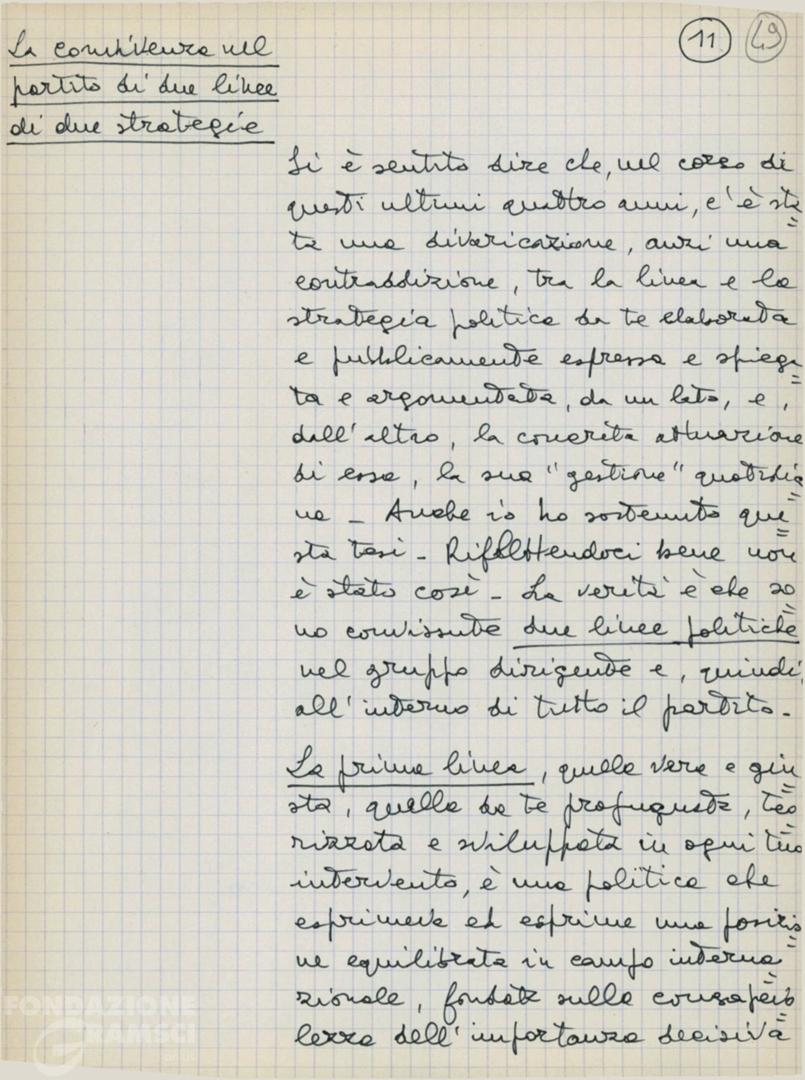 11 49
La convivenza nel
partito di due linee
di due strategie
Si è sentito dire che, nel corso di
questi ultimi quattro anni, c'è sta=
ta una divaricazione, anzi una
contraddizione, tra la linea e la
strategia politica da te elaborata
e pubblicamente espressa e spiega=
ta e argomentata, da un lato, e,
dall'altro, la concreta attuazione
di essa, la sua "gestione" quotidia=
na - Anche io ho sostenuto que=
sta tesi - Riflettendoci bene non
è stato così - La verità è che so=
no convissute due linee politiche
nel gruppo dirigente e, quindi,
all'interno di tutto il partito -
La prima linea, quella vera e giu=
sta, quella da te propugnata, teo=
rizzata e sviluppata in ogni tuo
intervento, è una politica che
esprimeva ed esprime una posizio=
ne equilibrata in campo interna=
zionale, fondata sulla consapevo=
lezza dell'importanza decisiva
FONDAZIONE
GRAMSCI